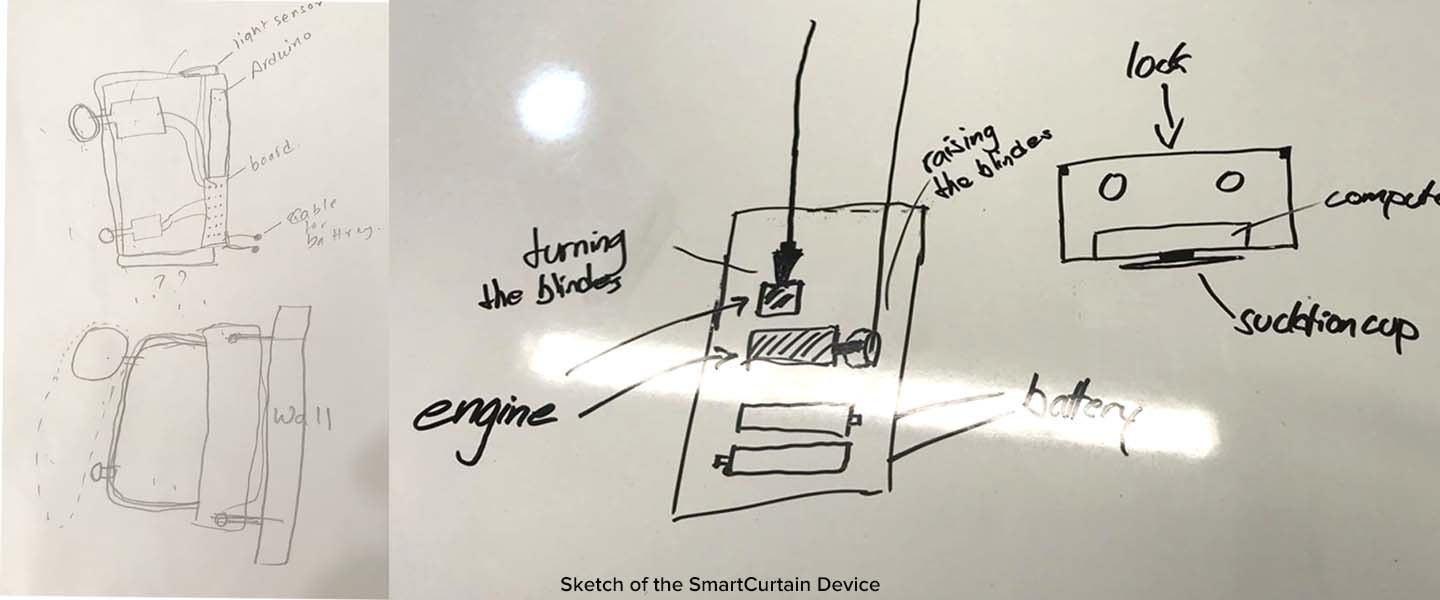 light sensor
Arduino
board.
Cable
for
battrey.
??
wall
turning
the blindes
engine
raising
the blindes
battery
lock
compute
suctioncup
Sketch of the SmartCurtain Device